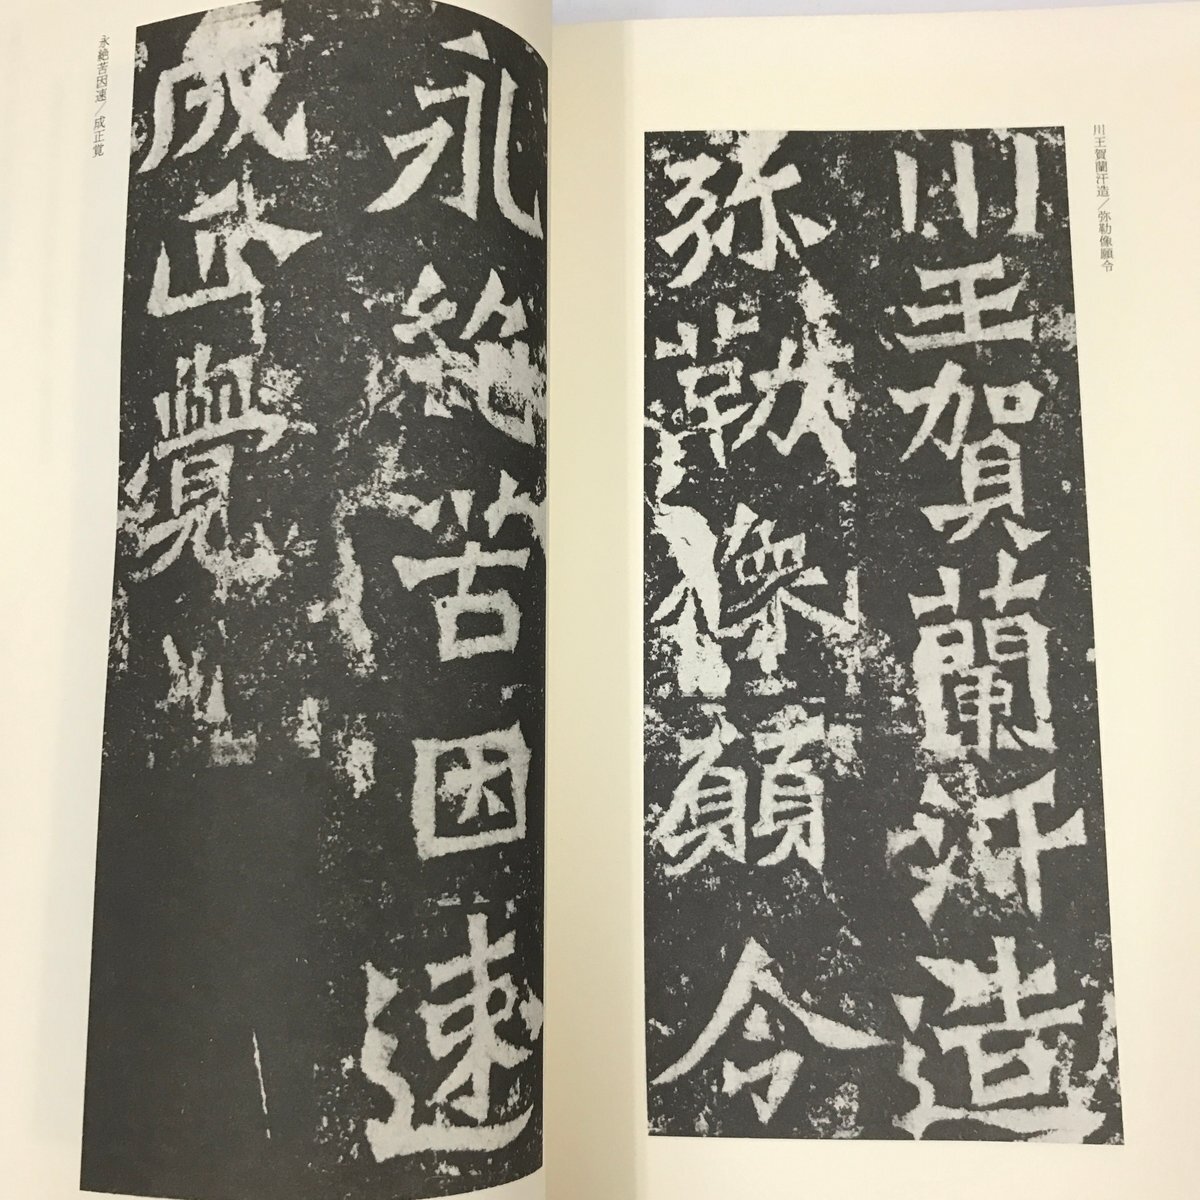 川王賀蘭汗造／弥勒像願令
川王賀蘭汗造
弥勒像願令
永絶苦因速
成正覺
永絶苦因速／成正覚